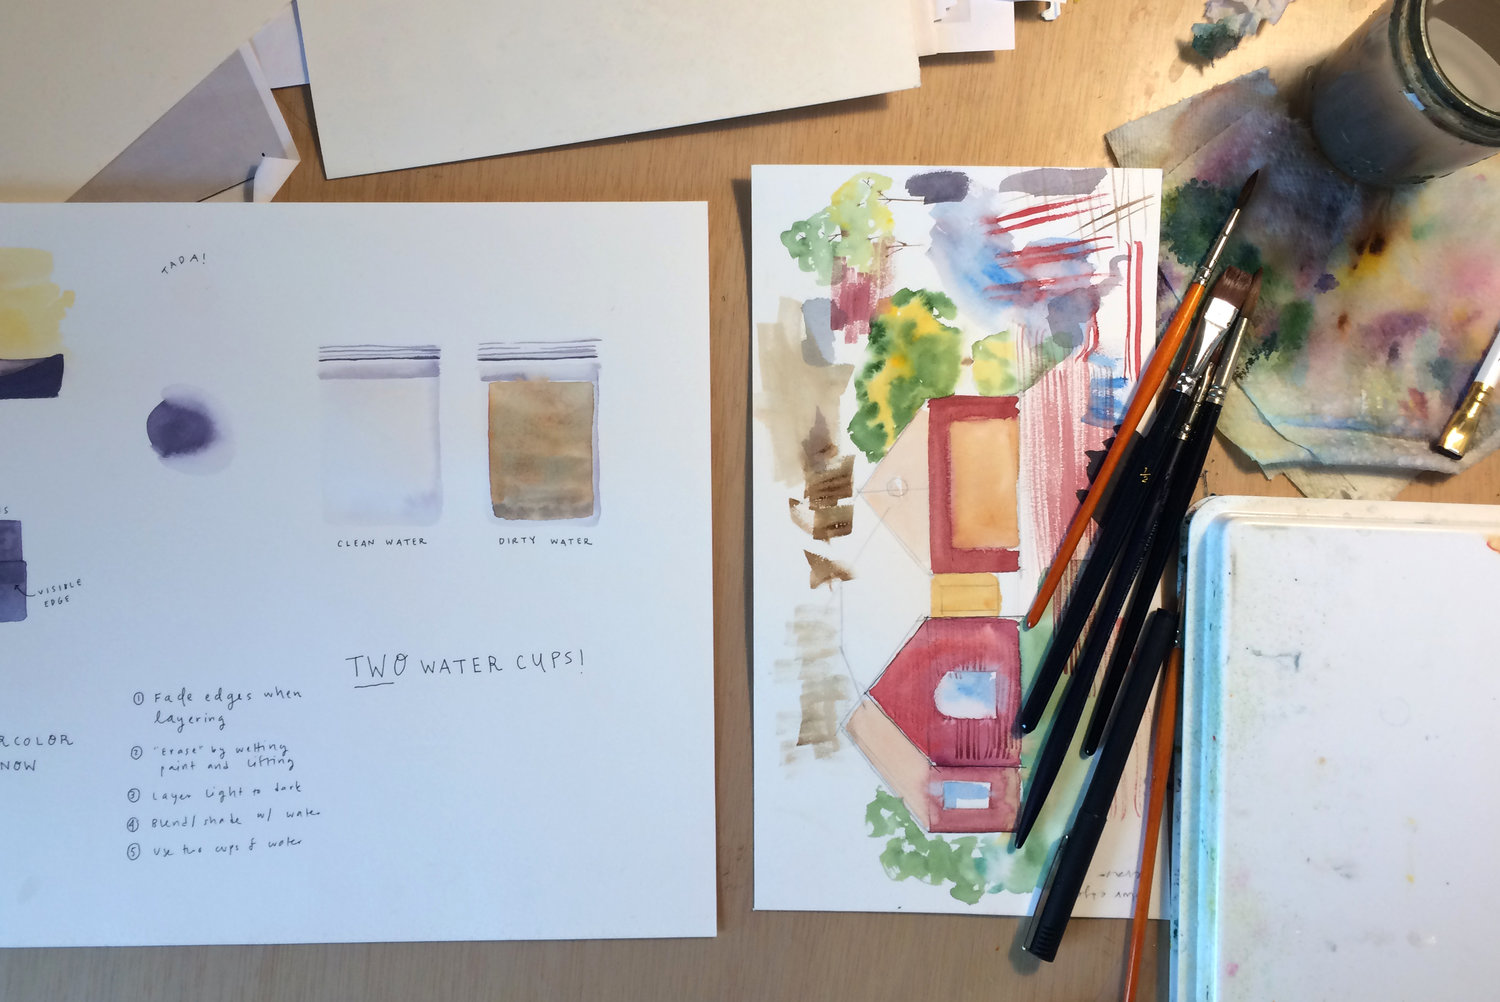 TADA!
CLEAN WATER
DIRTY WATER
IS
VISIBLE
EDGE
TWO WATER CUPS!
① Fade edges when
layering
② "Erase" by wetting
paint and lifting
③ Layer light to dark
④ Blend/shade w/ water
⑤ Use two cups of water
RCOLOR
NOW
1/2